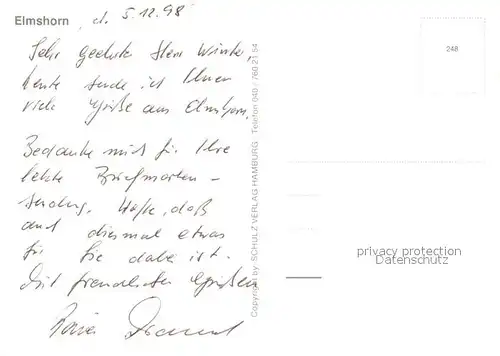 Elmshorn, d. 5.12.98
Sehr geehrter Herr Winter,
heute sende ich Ihnen
viele Grüße aus Elmshorn.
Bedanke mich für Ihre
letzte Briefmarken-
sendung. Hoffe, daß
auch diesmal etwas
für Sie dabei ist.
Mit freundlichen Grüßen
Rainer
Copyright by SCHULZ VERLAG HAMBURG Telefon 040 / 760 21 54
248
privacy protection
Datenschutz